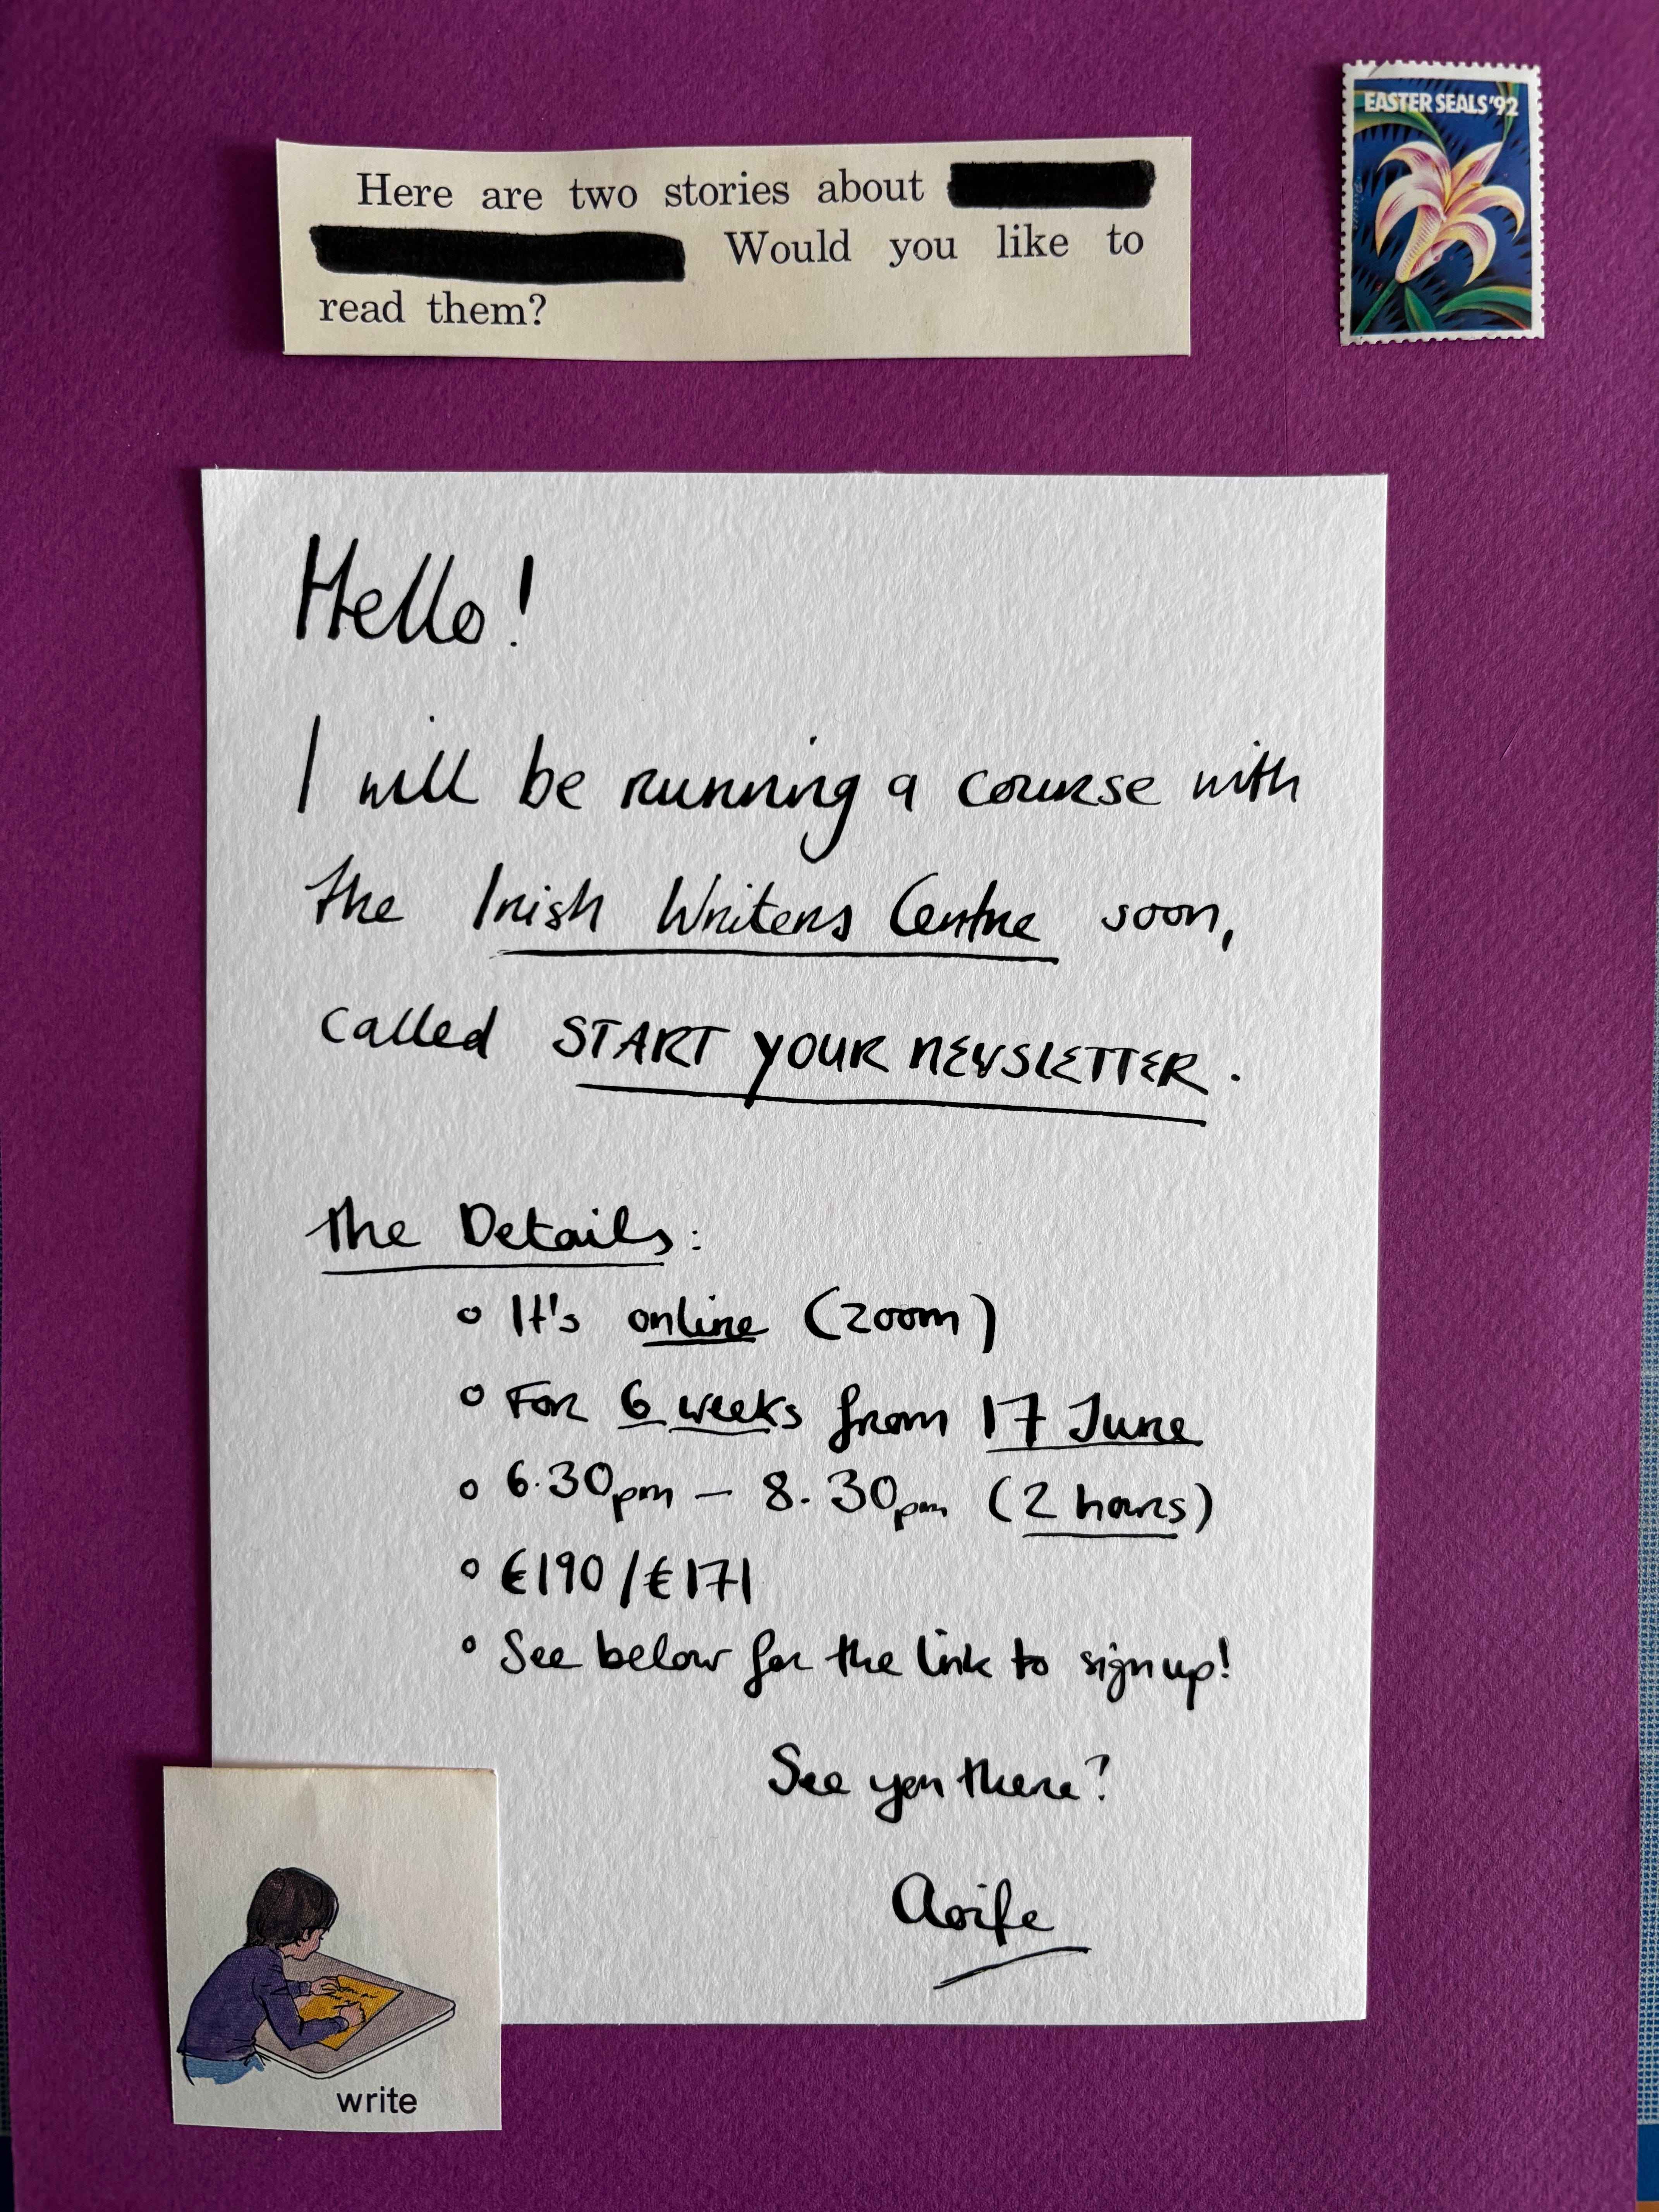 EASTER SEALS '92
Here are two stories about
Would you like to
read them?
Hello!
I will be running a course with
the Irish Writers Centre soon,
called START YOUR NEWSLETTER.
The Details:
It's online (zoom)
For 6 weeks from 17 June
6.30pm – 8.30pm (2 hours)
€190/€171
See below for the link to sign up!
See you there?
Aoife
write